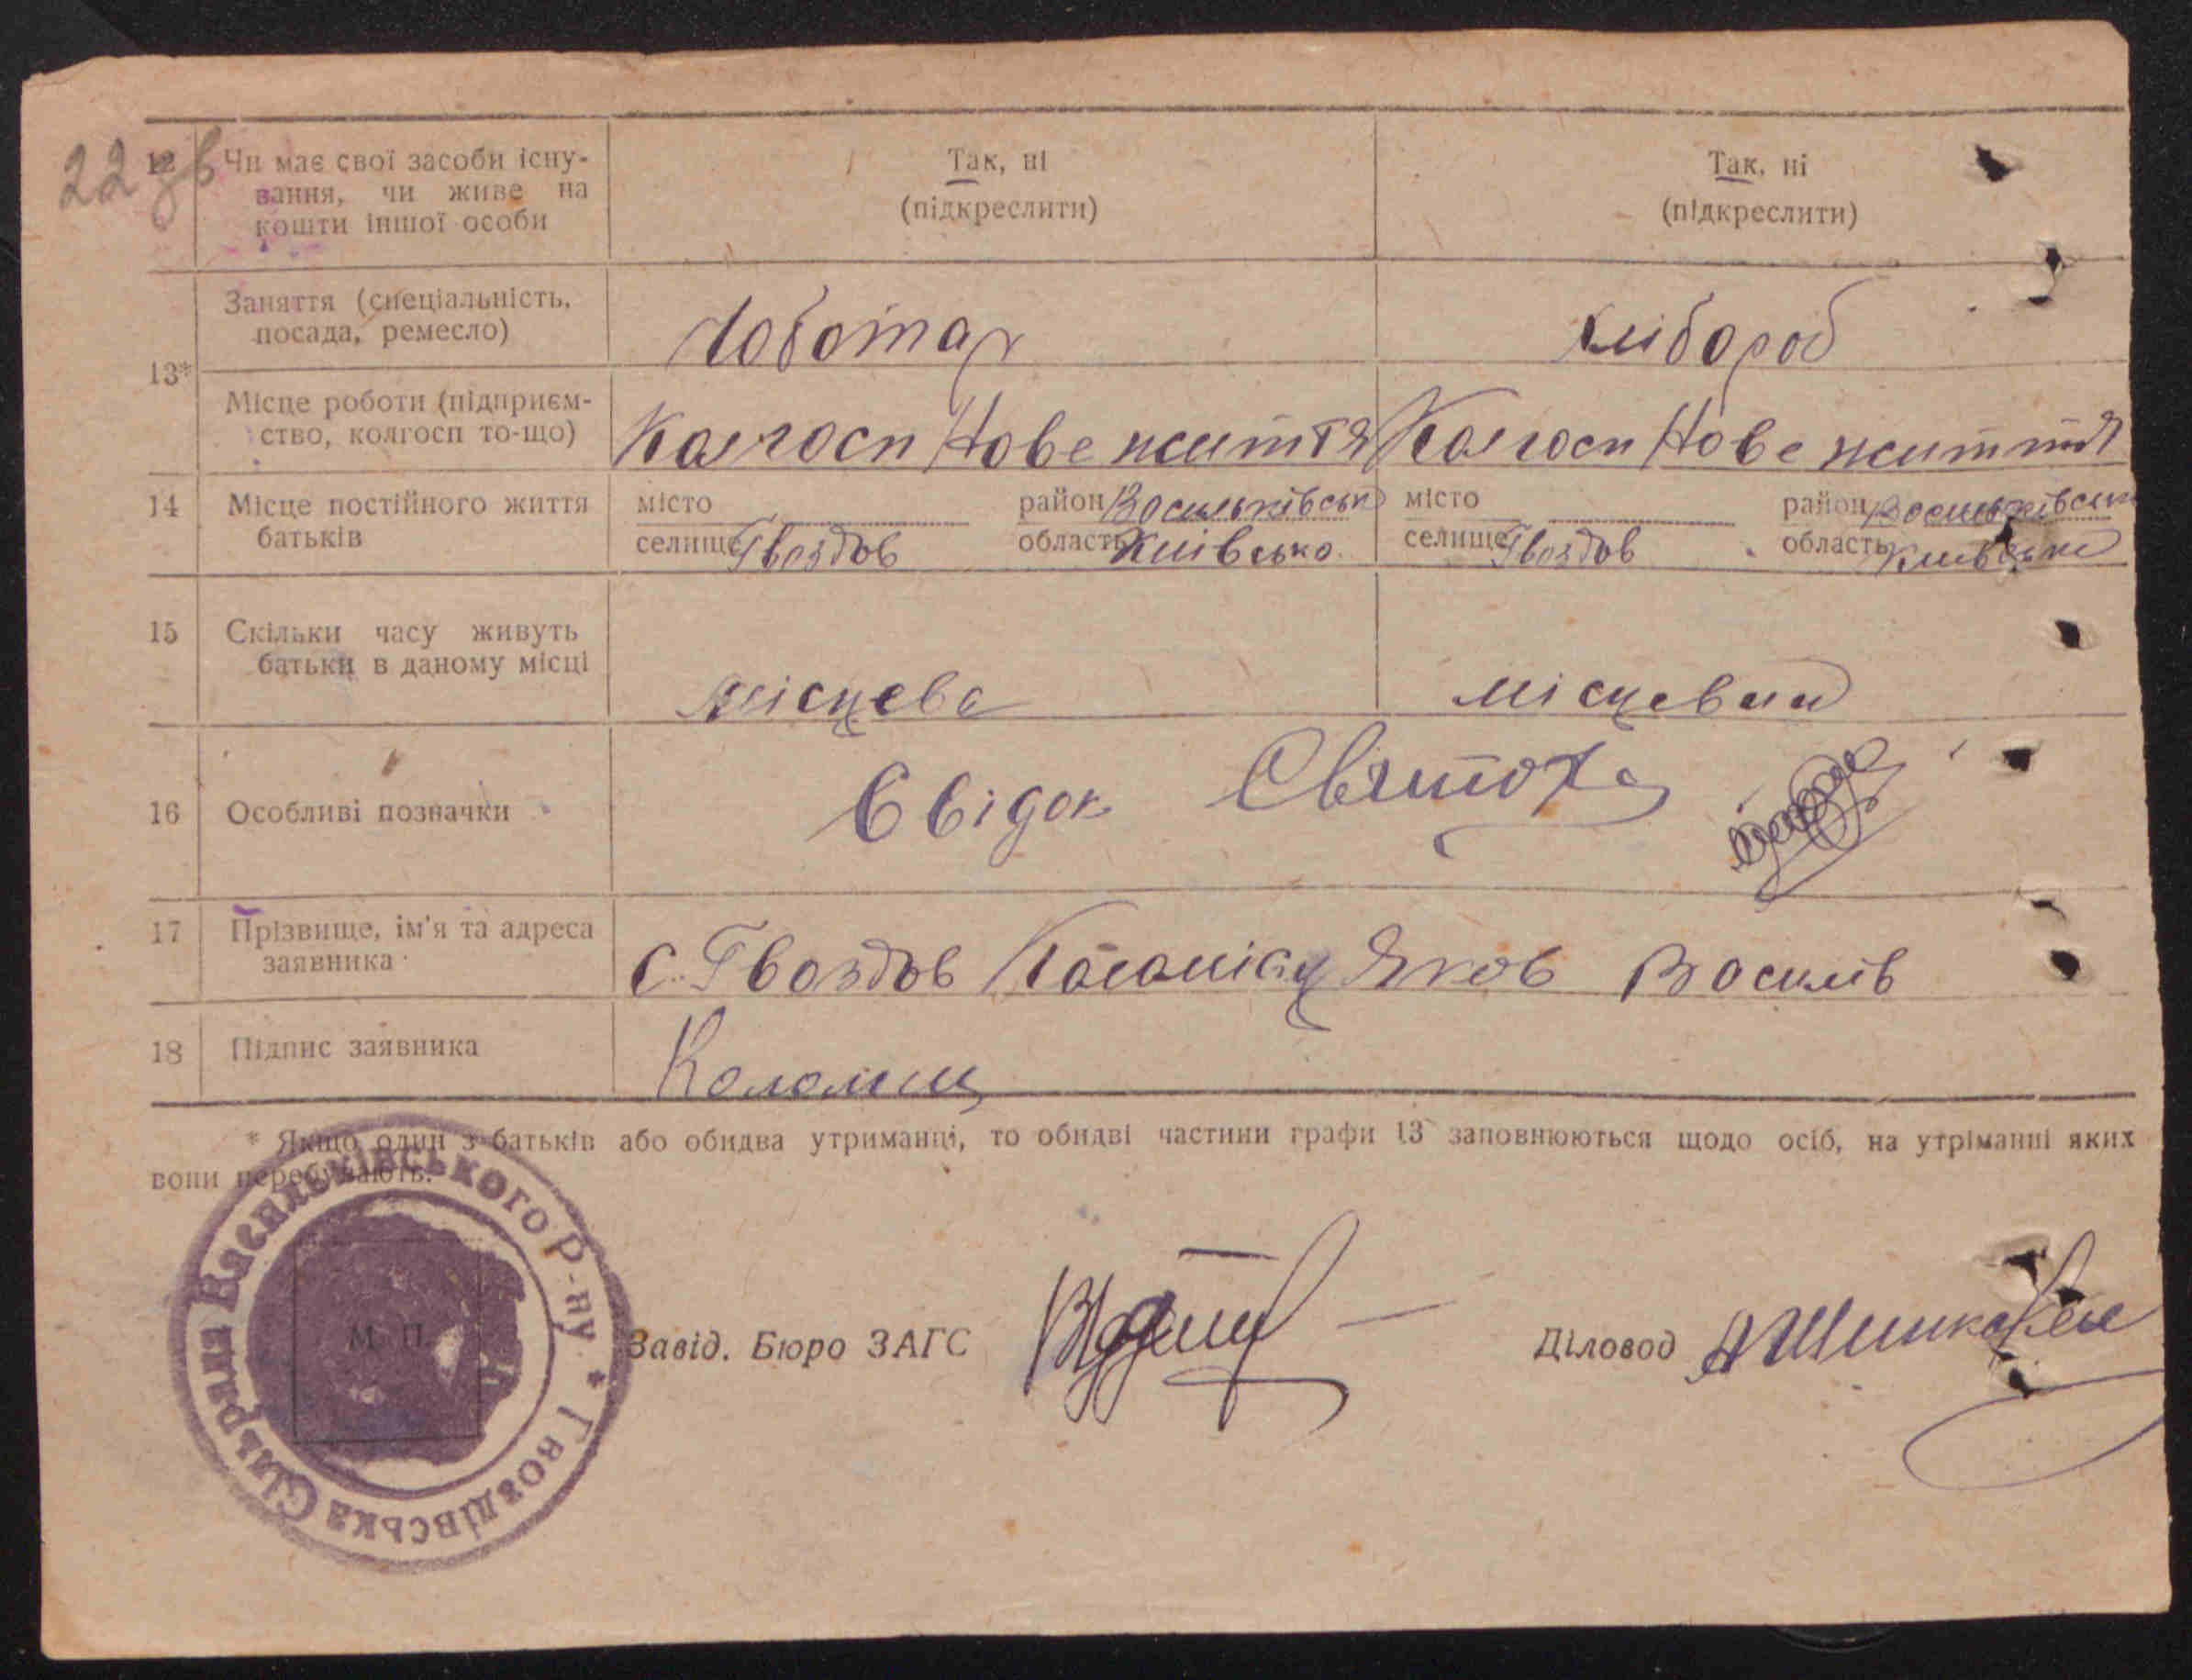 22 зв
12 Чи має свої засоби існу- Так, ні Так, ні
вання, чи живе на (підкреслити) (підкреслити)
кошти іншої особи
13* Заняття (спеціальність, Чоботар хлібороб
посада, ремесло)
Місце роботи (підприєм- Колгосп Нове життя Колгосп Нове життя
ство, колгосп то-що)
14 Місце постійного життя місто район Васильківськ місто район Васильківськ
батьків селище Гвоздов область Київсько селище Гвоздов область Київська
15 Скільки часу живуть
батьки в даному місці місцева місцевий
16 Особливі позначки Свідок
17 Прізвище, ім'я та адреса
заявника с. Гвоздов Коломієц Яков Василів
18 Підпис заявника Коломиец
* Якщо один з батьків або обидва утриманці, то обидві частини графи 13 заповнюються щодо осіб, на утріманні яких
вони перебувають.
Гвоздівська Сільрада Васильківського Р-ну *
М. П.
Завід. Бюро ЗАГС
Діловод